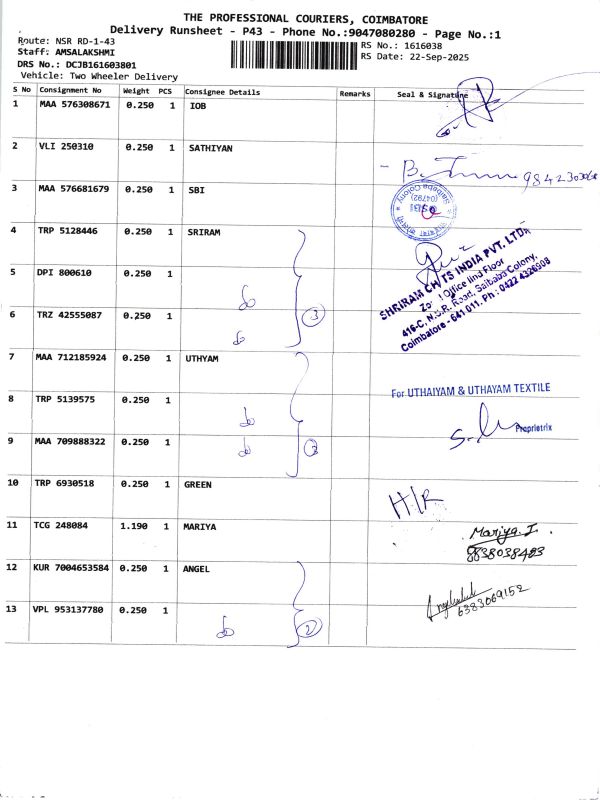 THE PROFESSIONAL COURIERS, COIMBATORE
Delivery Runsheet - P43 - Phone No.:9047080280 - Page No.:1
Route: NSR RD-1-43
Staff: AMSALAKSHMI
DRS No.: DCJB161603801
Vehicle: Two Wheeler Delivery
RS No.: 1616038
RS Date: 22-Sep-2025
S No Consignment No Weight PCS Consignee Details Remarks Seal & Signature
1 MAA 576308671 0.250 1 IOB
2 VLI 250310 0.250 1 SATHIYAN
3 MAA 576681679 0.250 1 SBI
Saibaba Colony
(04792)
SBI
4 TRP 5128446 0.250 1 SRIRAM
5 DPI 800610 0.250 1
6 TRZ 42555087 0.250 1
3
SHRIRAM CHITS INDIA PVT. LTD.
Office IInd Floor
416-C, N.S.R. Road, Saibaba Colony,
Coimbatore - 641 011. Ph : 0422 4326908
7 MAA 712185924 0.250 1 UTHYAM
8 TRP 5139575 0.250 1
9 MAA 709888322 0.250 1
3
For UTHAIYAM & UTHAYAM TEXTILE
Proprietrix
10 TRP 6930518 0.250 1 GREEN
H/R
11 TCG 248084 1.190 1 MARIYA
Mariya. I.
12 KUR 7004653584 0.250 1 ANGEL
6383069152
13 VPL 953137780 0.250 1
2